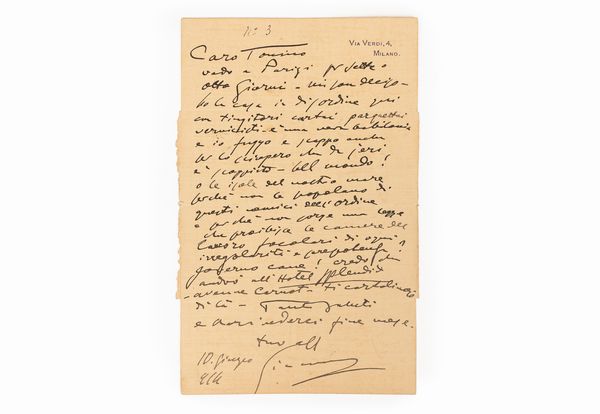 N: 3
VIA VERDI, 4,
MILANO.
Caro Tonino
vado a Parigi per sette o
otto giorni - mi son deciso -
ho la casa in disordine qui
con tingitori cartai parquettai
verniciai - è una vera babilonia
e io fuggo e scappo anche
per lo sciopero che da jeri
è scoppiato - bel mondo!
o le isole del nostro mare
perchè non le popolano di
questi nemici dell'ordine
e perchè non sorge una legge
che proibisca le camere del
lavoro focolari di ogni
irregolarità e prepotenza!
Governo cane! credo che
andrò all'Hotel Splendid
- avenue Carnot - ti cartolinerò
di là - Tanti saluti
e arrivederci fine mese.
tuo aff
10. Giugno